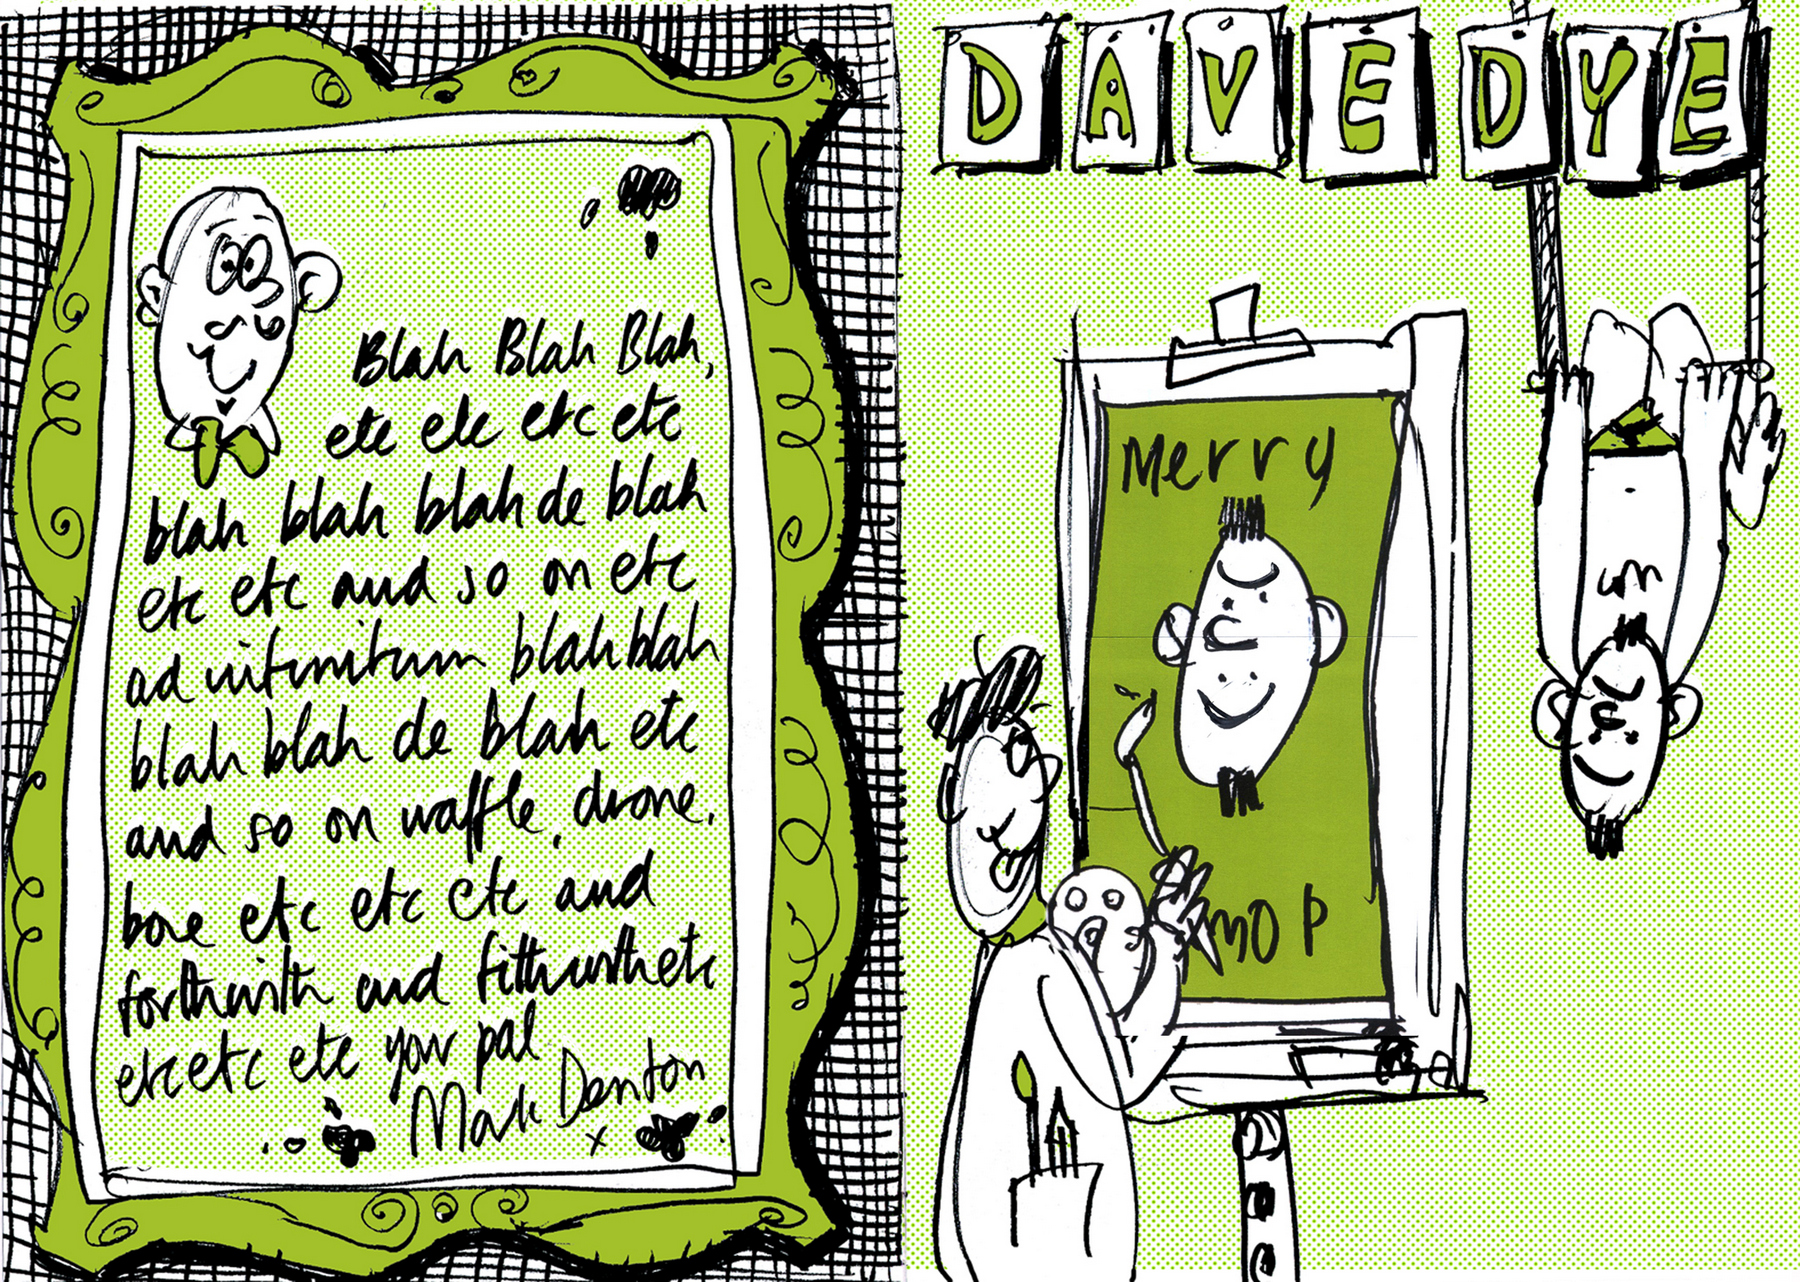 Blah Blah Blah,
etc etc etc etc
blah blah blah de blah
etc etc and so on etc
ad infinitum blah blah
blah blah de blah etc
and so on waffle, drone,
bore etc etc etc and
forthwith and fithwith etc
etc etc etc your pal
Mark Denton
x
DAVE DYE
Merry
MOP